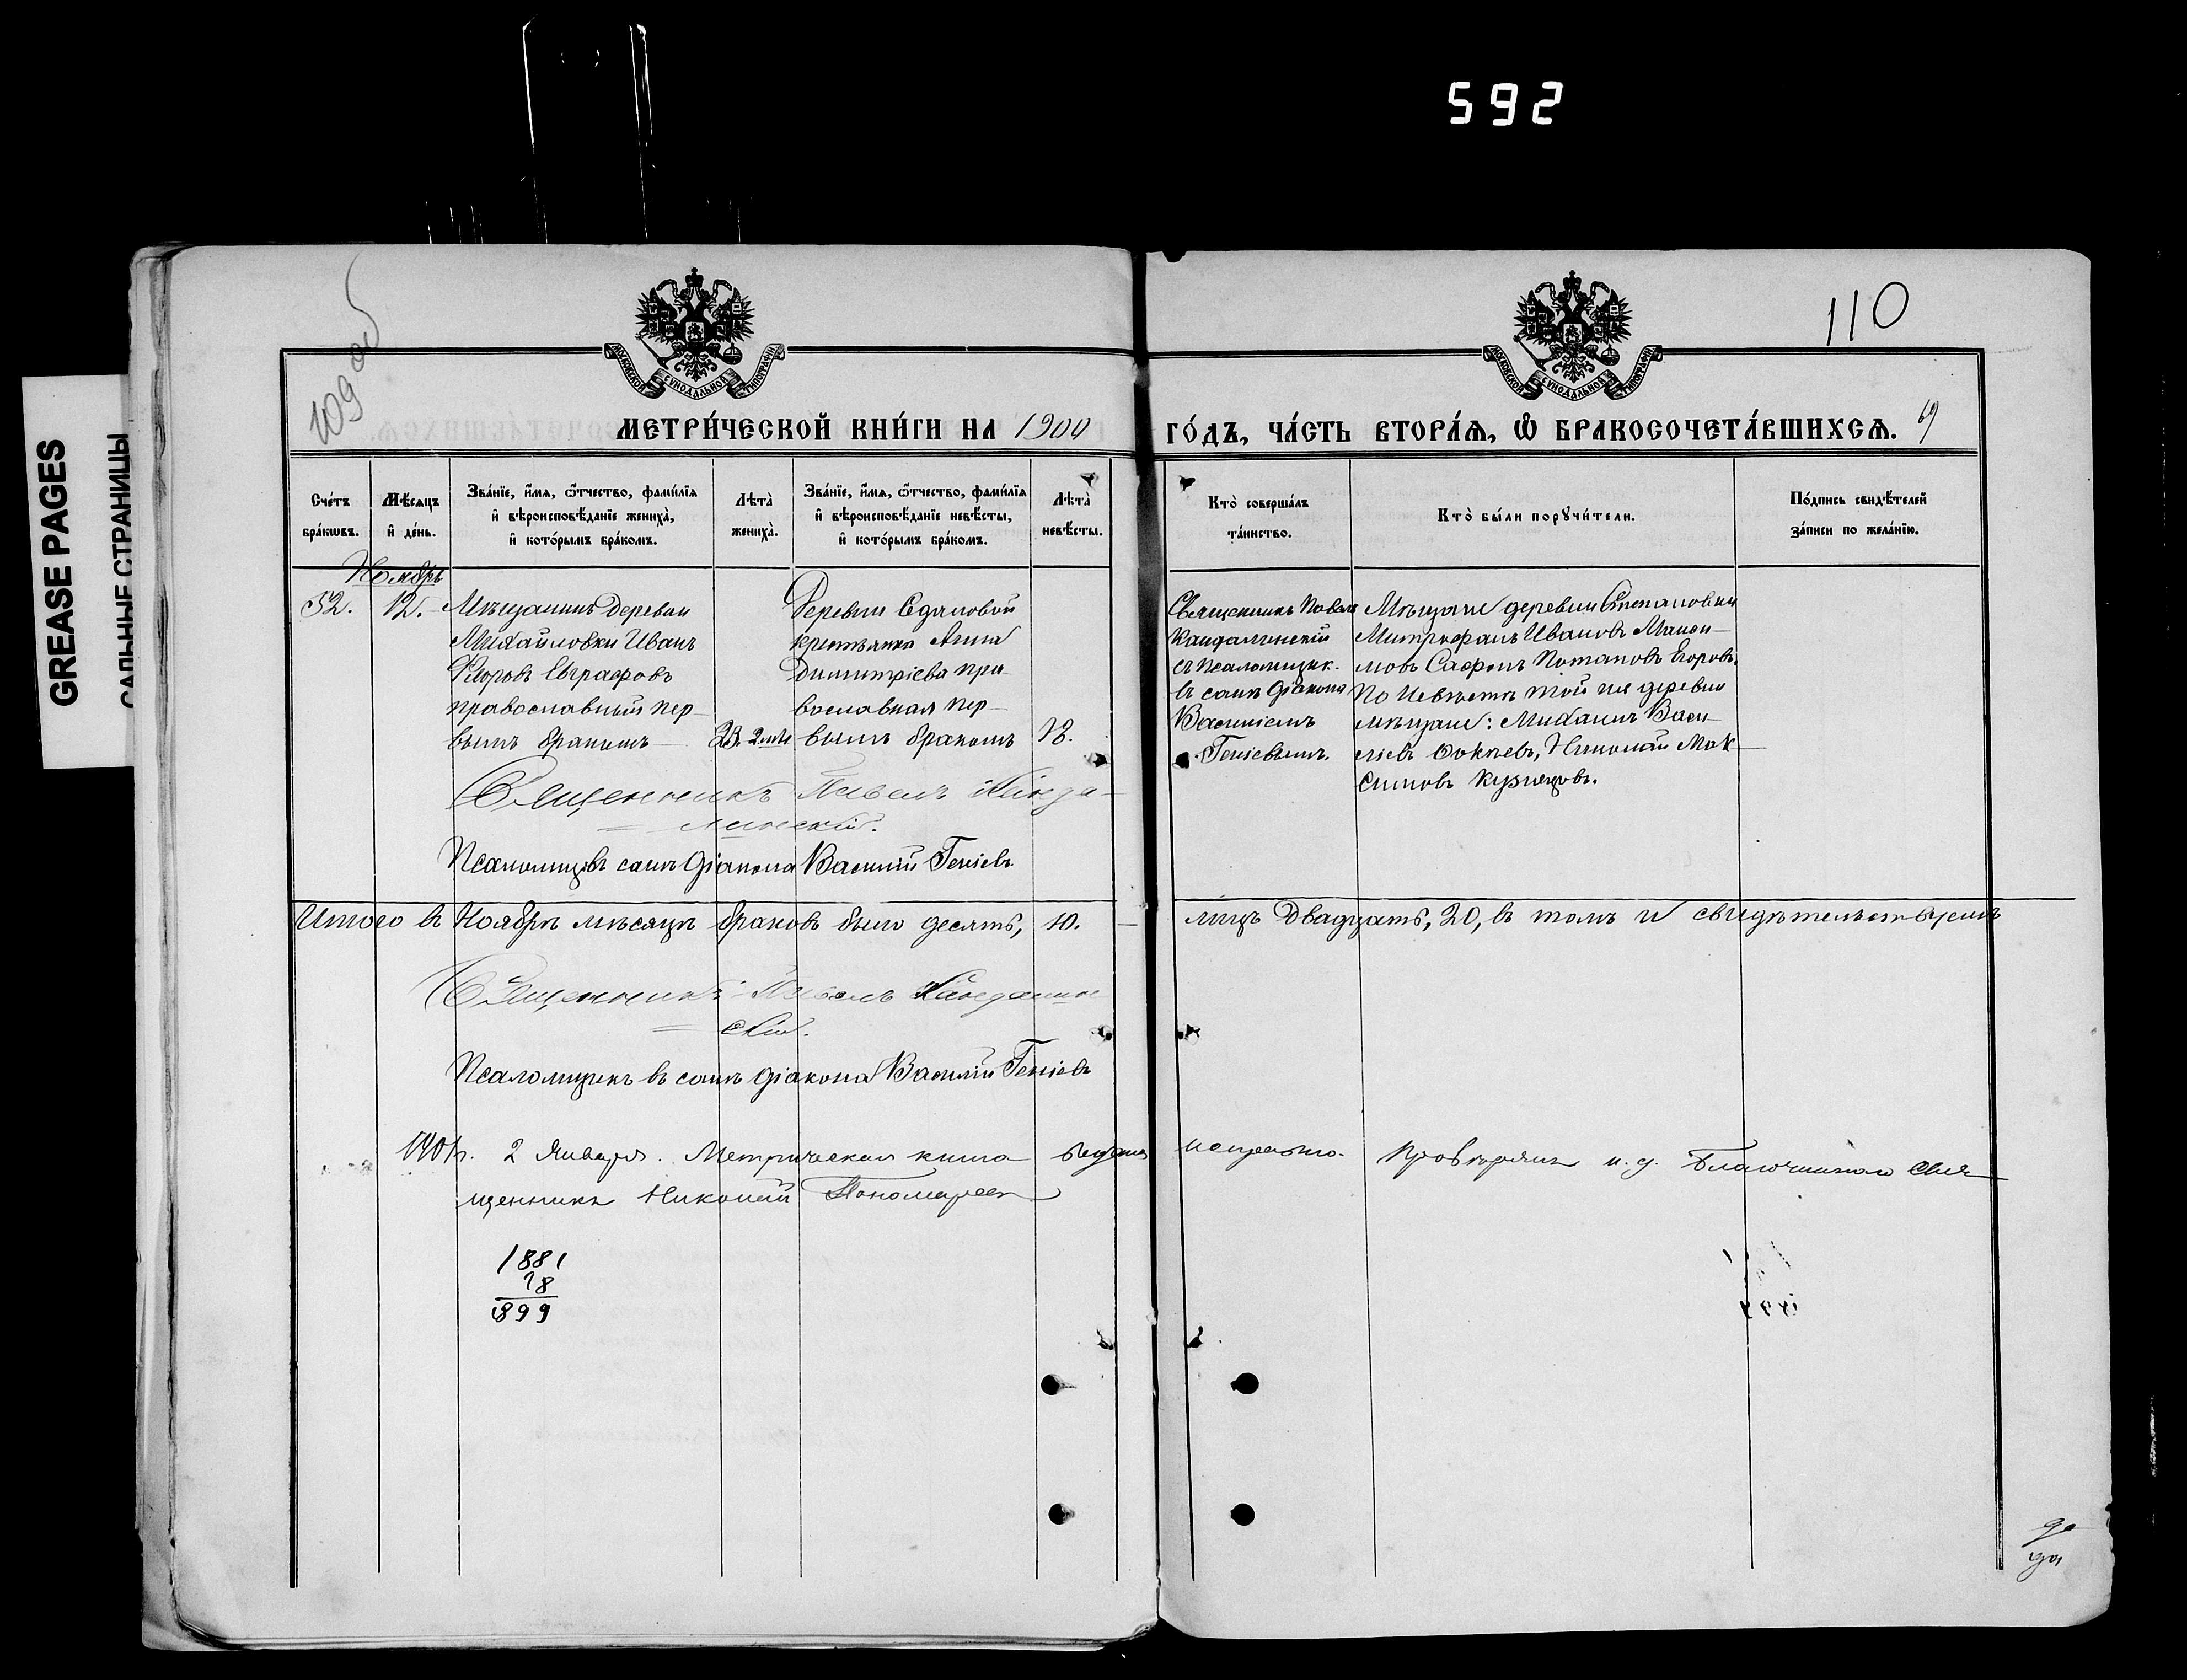 592
GREASE PAGES
САЛЬНЫЕ СТРАНИЦЫ
109 об
110
МОСКОВСКОЙ СУНОДАЛЬНОЙ ТИПОГРАФІИ
МОСКОВСКОЙ СУНОДАЛЬНОЙ ТИПОГРАФІИ
МЕТРИ́ЧЕСКОЙ КНИ́ГИ НА 1900
ГО́ДЪ, ЧА́СТЬ ВТОРА́Ѧ, Ѡ҆ БРАКОСОЧЕТА́ВШИХСѦ.
Сче́тъ
бра́кѡвъ.
Мѣ́сѧцъ
и҆ де́нь.
Зва́нїе, и҆́мѧ, ѻ҆́тчество, фами́лїѧ
и҆ вѣроисповѣ́данїе жениха̀,
и҆ кото́рымъ бра́комъ.
Лѣта̀
жениха̀.
Зва́нїе, и҆́мѧ, ѻ҆́тчество, фами́лїѧ
и҆ вѣроисповѣ́данїе невѣ́сты,
и҆ кото́рымъ бра́комъ.
Лѣта̀
невѣ́сты.
Кто̀ соверша́лъ
та́инство.
Кто̀ бы́ли порꙋчи́тели.
По́дпись свидѣ́телей
за́писи по жела́нїю.
Ноябрь
52.
12.
Мѣщанинъ деревни
Михайловки Иванъ
Евграфовъ
православный пер-
вымъ бракомъ
23.
Деревни
крестьянка Анна
Димитріева пра-
вославная пер-
вымъ бракомъ
18.
Священникъ Павелъ
Кандалинскій
съ псаломщик.
въ санѣ діакона
Василіемъ
Геніевымъ.
Мѣщане деревни Степановки
Митрофанъ Ивановъ
Потаповъ Егоровъ.
По невѣстѣ той же деревни
мѣщане: Михаилъ Васи-
ліевъ Фокѣевъ, Николай Мак-
симовъ Кузнецовъ.
Священникъ Павелъ Канда-
линскій.
Псаломщ. въ санѣ діакона Василій Геніевъ.
Итого въ Ноябрѣ мѣсяцѣ браковъ было десять, 10.
лицъ двадцать, 20, въ томъ и свидѣтельствуемъ
Священникъ Павелъ Кандалин
скій.
Псаломщикъ въ санѣ діакона Василій Геніевъ
1901 г. 2 Января. Метрическая книга ведена исправно. Провѣрялъ и. д. Благочиннаго Свя-
щенникъ Николай Пономаревъ
1881
18
1899